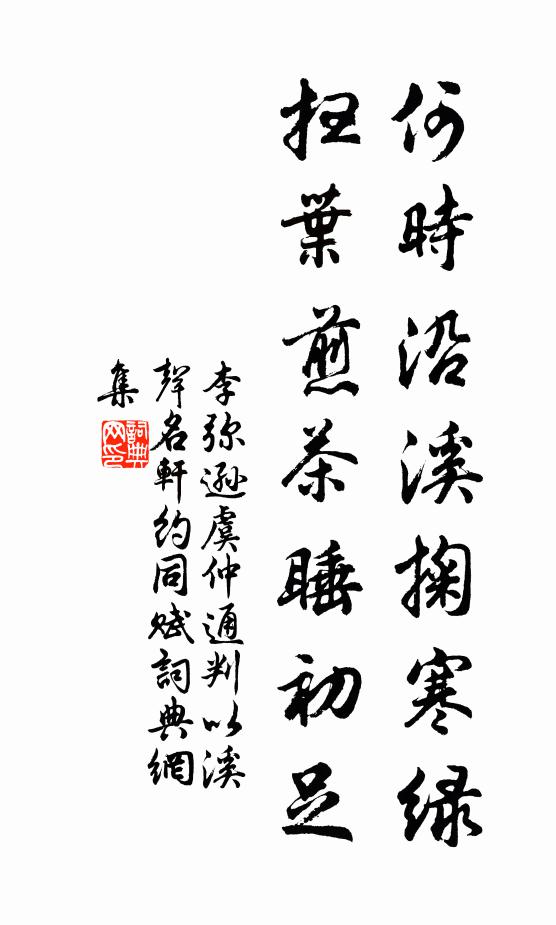 何時沿溪掬寒緑
扫葉煎茶睡初足
李弥遜虞仲通判以溪
聲名軒約同赋詞典網
集
詞典网印